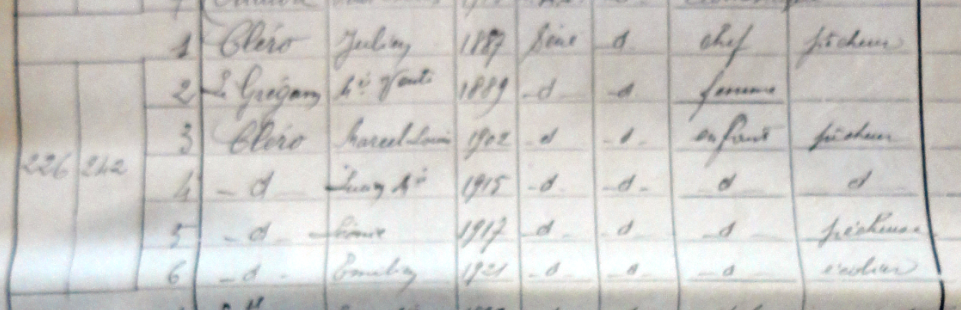 1 Cléro Julien 1887 Séné d chef pêcheur
2 Le Grégam Mie 1889 d d femme
3 Cléro Marcel-Louis 1902 d d enfant pêcheur
226 242
4 d Mie 1915 d d d d
5 d 1917 d d d pêcheur
6 d Emilien 1921 d d d écolier